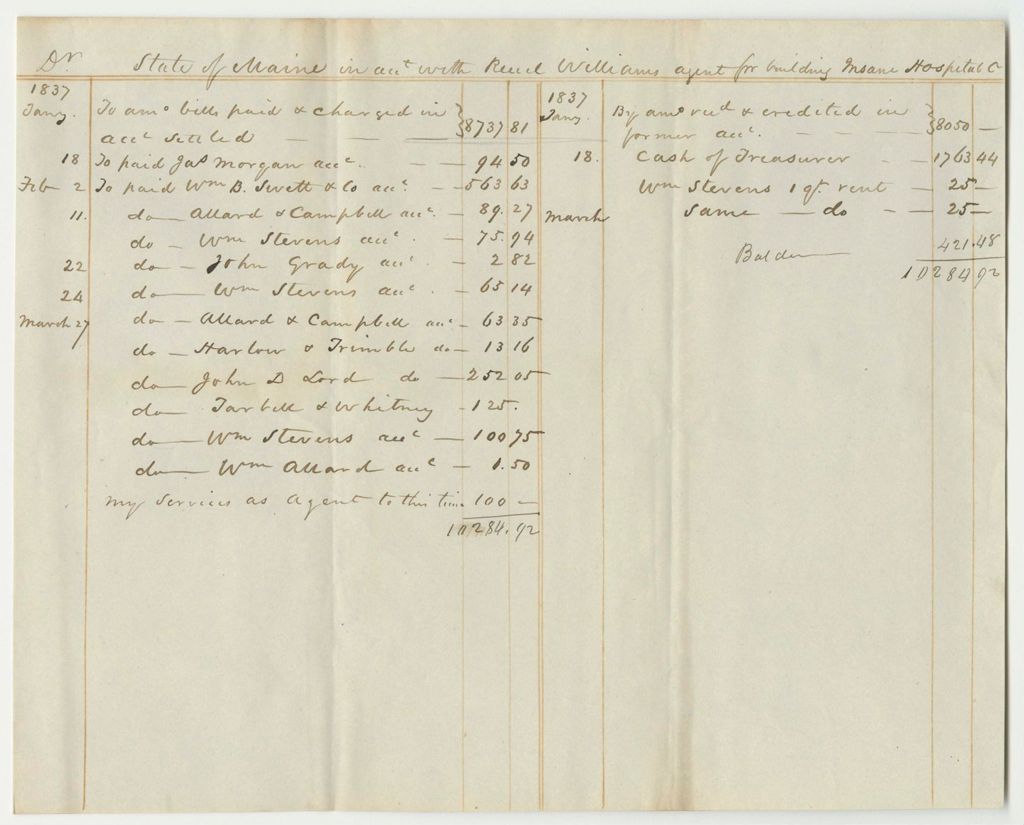 Dr. State of Maine in acct with Reuel Williams agent for building Insane Hospital Cr
1837
Jany. To amo bills paid & charged in
acct settled — 8737 81
18 To paid Jas Morgan acct. — 94 50
Feb 2 To paid Wm D. Swett & Co acct. — 563 63
11. do — Allard & Campbell acct. — 89.27
do — Wm Stevens acct. — 75.94
22 do — John Grady acct. — 2 82
24 do — Wm Stevens acct. — 65 14
March 27 do — Allard & Campbell acct — 63 35
do — Harlow & Trimble do — 13 16
do — John D Lord do — 252 05
do — Tarbell & Whitney — 125.
do — Wm Stevens acct — 100 75
do — Wm Allard acct — 1.50
my services as Agent to this time 100 —
10284.92
1837
Jany. By amo recd & credited in
former acct. — 8050 —
18. Cash of Treasurer — 1763 44
Wm Stevens 1 qr. rent — 25 —
March same — do — 25 —
Bal due — 421.48
10284 92